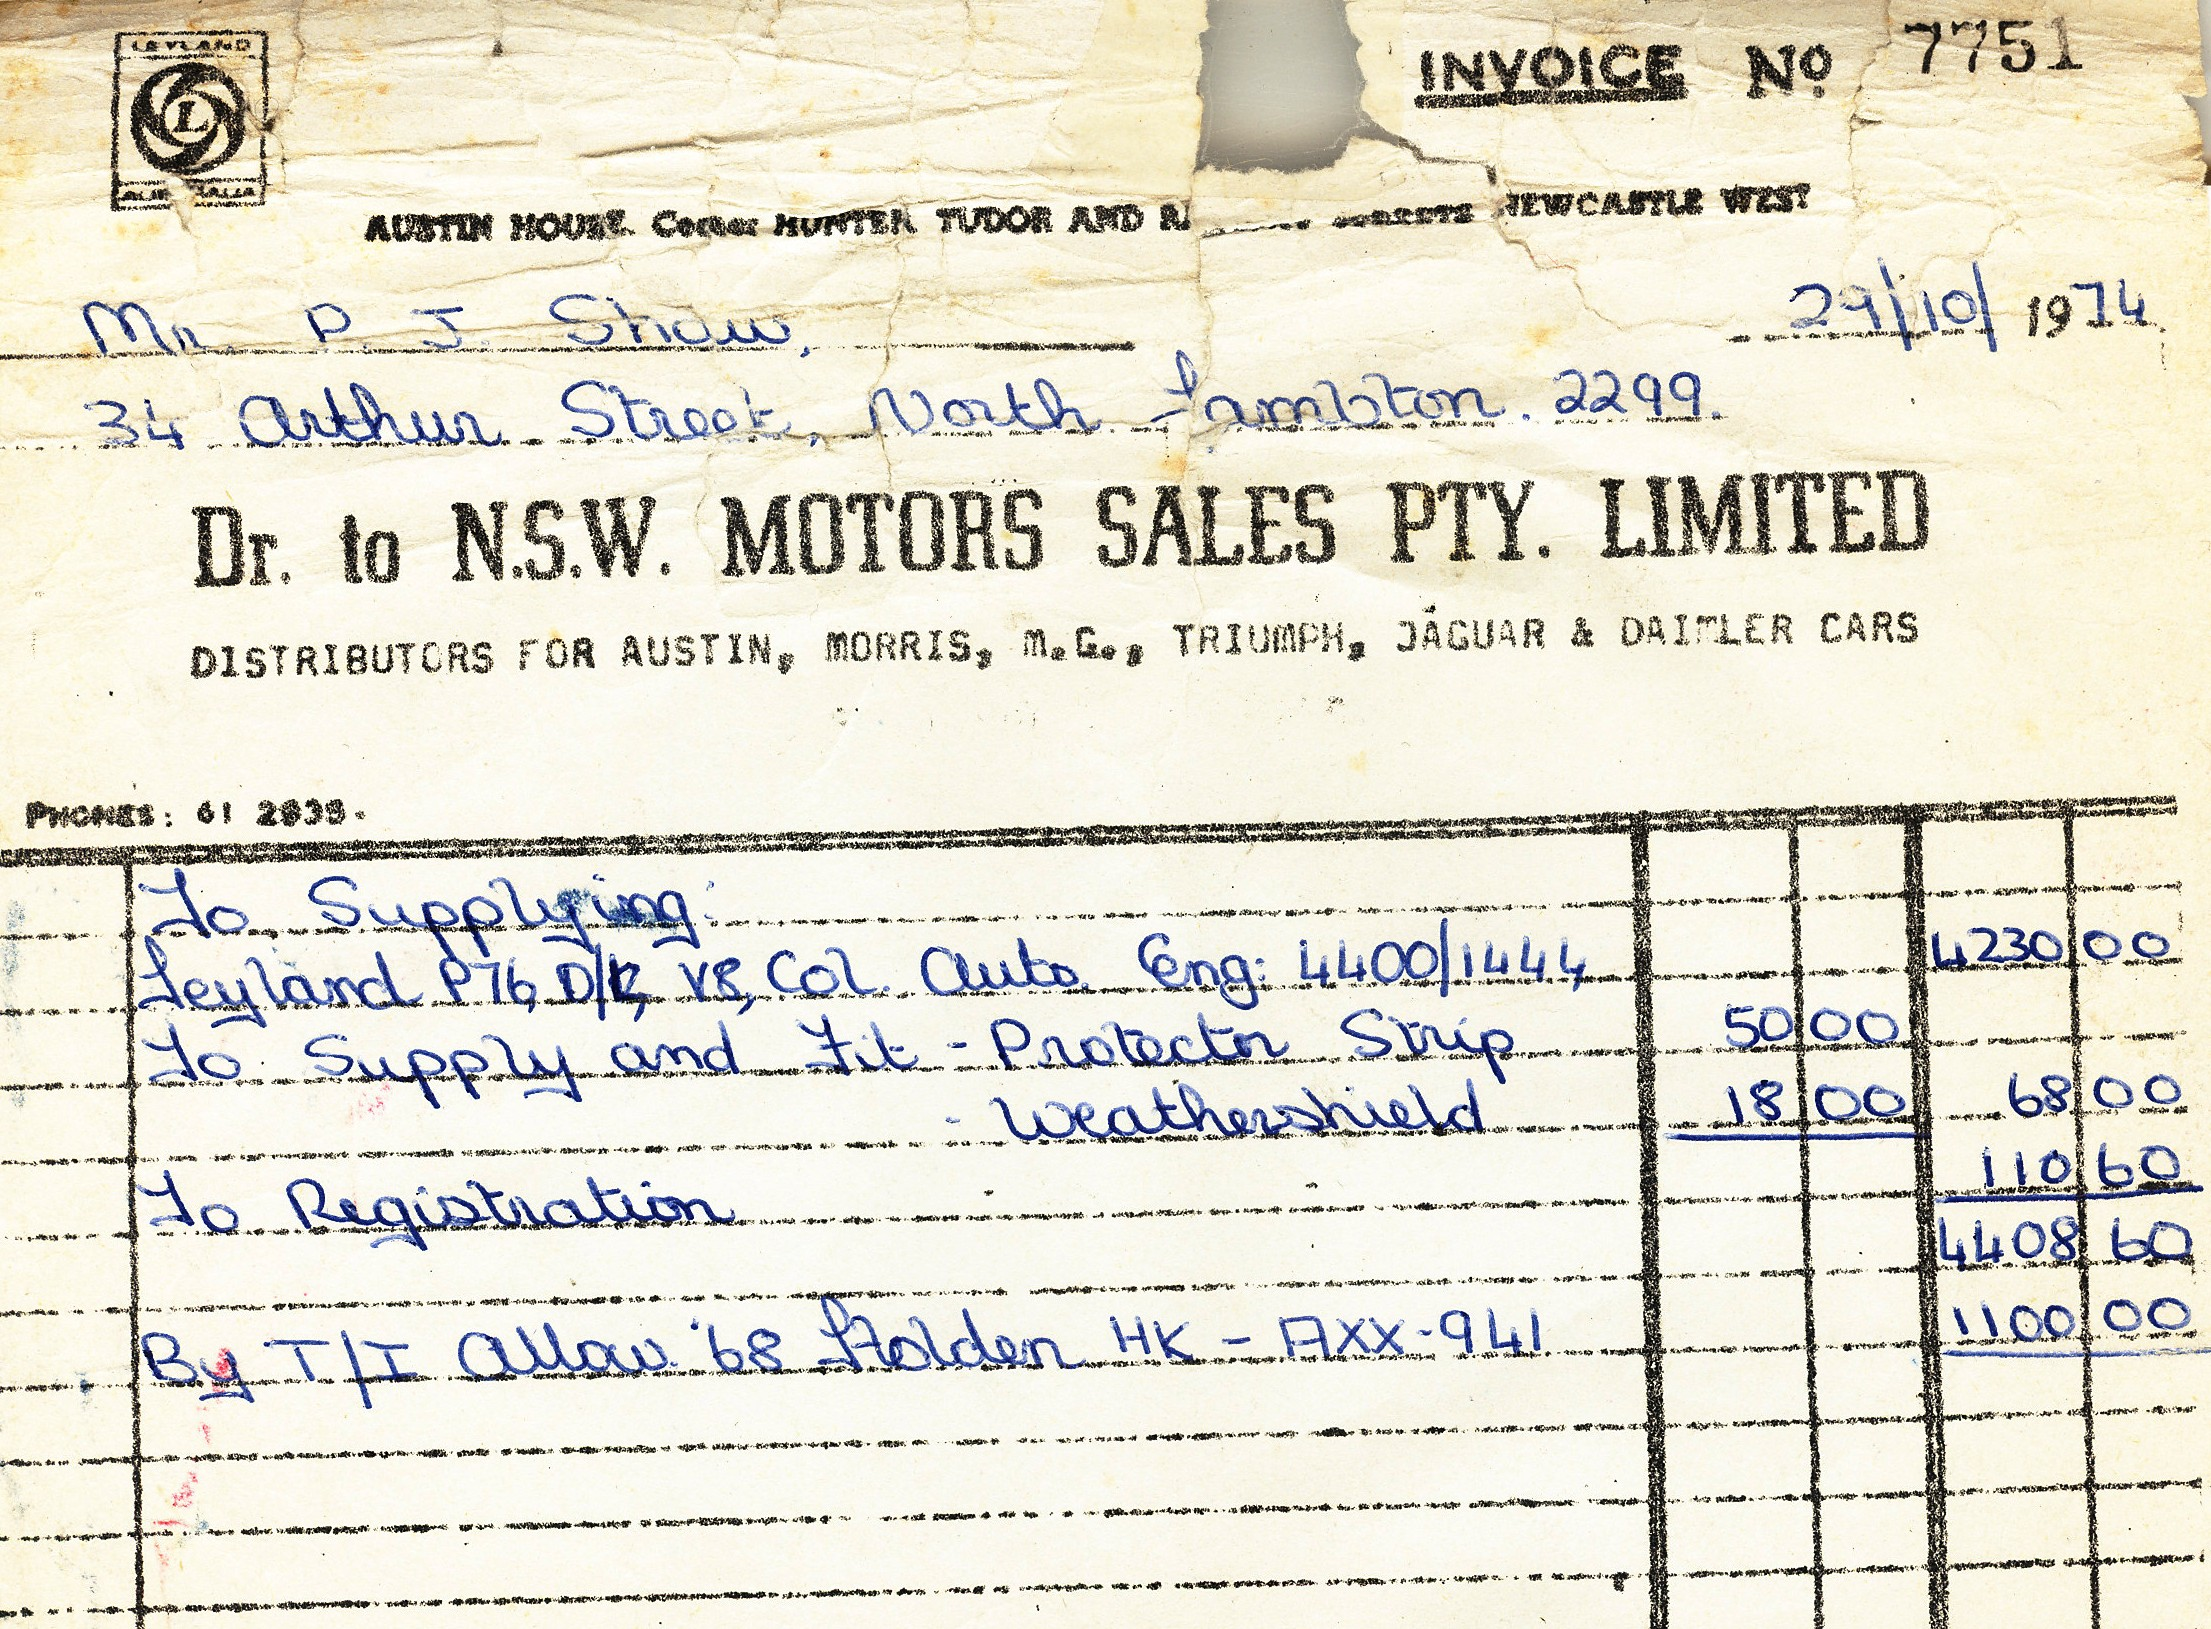 LEYLAND
L
INVOICE No 7751
AUSTIN HOUSE. Corner HUNTER TUDOR AND STREETS NEWCASTLE WEST
29/10/1974
Mr. P. J. Shaw,
34 Arthur Street, North Lambton. 2299.
Dr. to N.S.W. MOTORS SALES PTY. LIMITED
DISTRIBUTORS FOR AUSTIN, MORRIS, M.G., TRIUMPH, JAGUAR & DAIMLER CARS
PHONES: 61 2839.
To Supplying:
Leyland P76, D/L, V8, Col. Auto. Eng: 4400/1444, 4230 00
To Supply and Fit - Protector Strip 50 00
- Weathershield 18 00 68 00
To Registration 110 60
4408 60
By T/I Allow. '68 Holden HK - AXX-941 1100 00